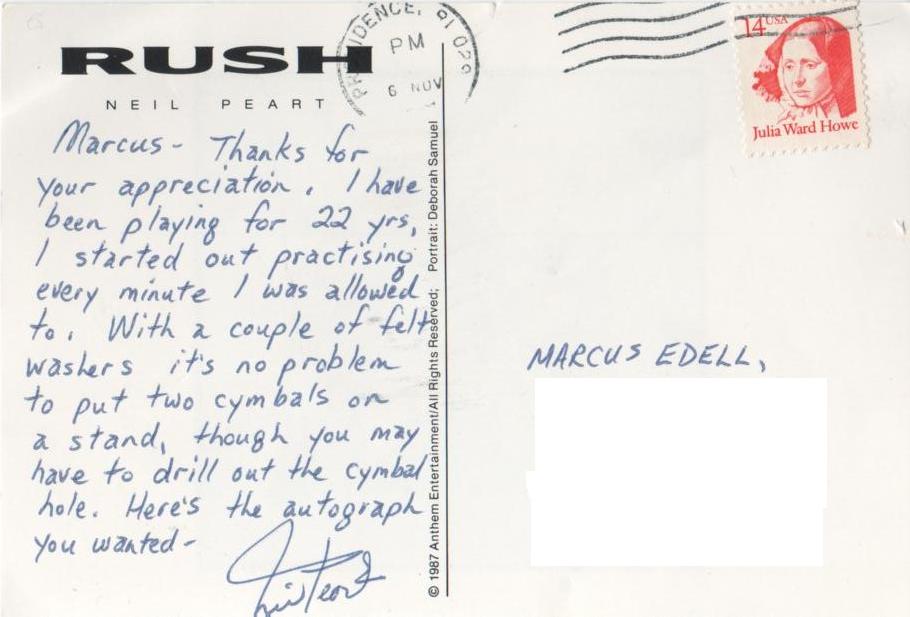 RUSH
NEIL PEART
Marcus- Thanks for
your appreciation. I have
been playing for 22 yrs,
I started out practising
every minute I was allowed
to. With a couple of felt
washers it's no problem
to put two cymbals on
a stand, though you may
have to drill out the cymbal
hole. Here's the autograph
you wanted-
Neil Peart
© 1987 Anthem Entertainment/All Rights Reserved; Portrait: Deborah Samuel
PM
6 NOV
14 USA
Julia Ward Howe
MARCUS EDELL,